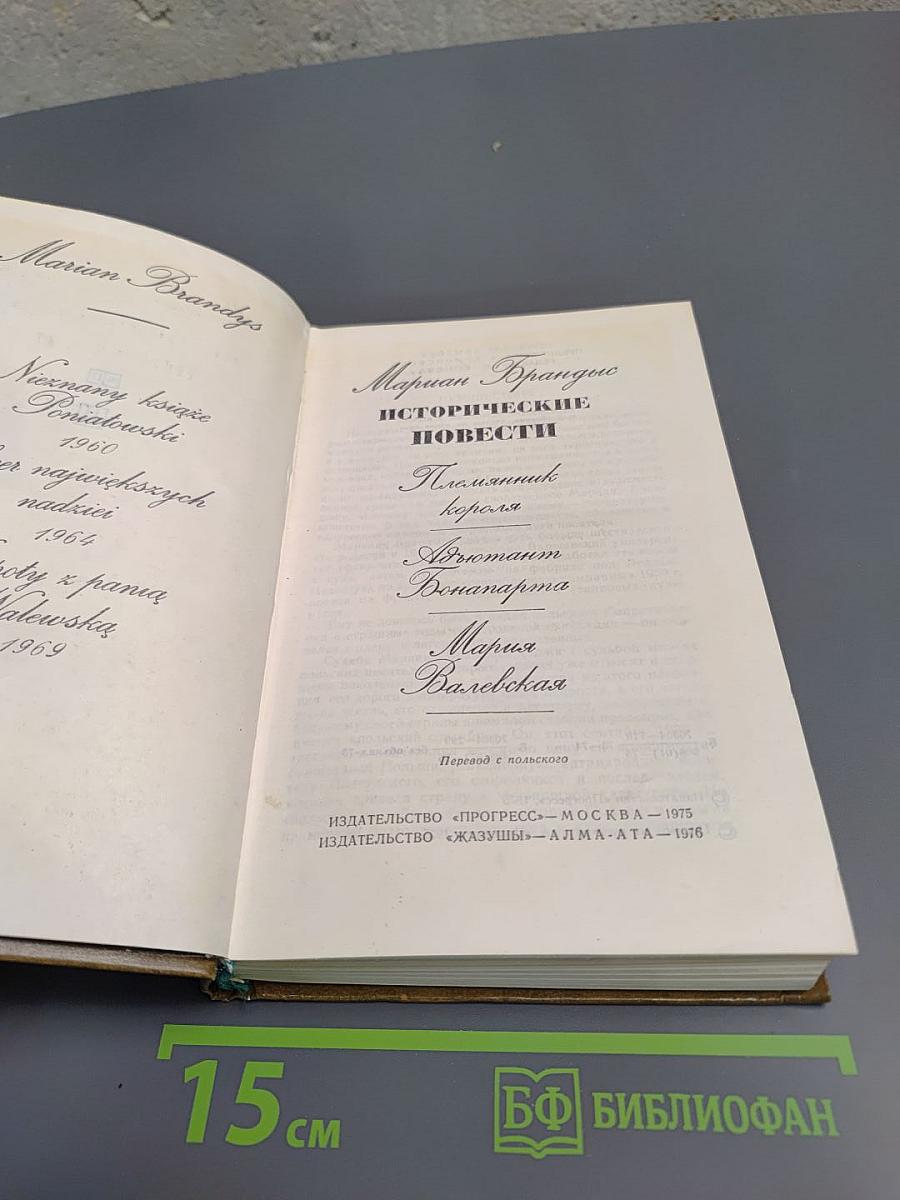 Marian Brandys
Nieznany książe
Poniatowski
1960
największych
nadziei
1964
z panią
Walewską
1969
Мариан Брандыс
ИСТОРИЧЕСКИЕ
ПОВЕСТИ
Племянник
короля
Адъютант
Бонапарта
Мария
Валевская
Перевод с польского
ИЗДАТЕЛЬСТВО «ПРОГРЕСС»—МОСКВА—1975
ИЗДАТЕЛЬСТВО «ЖАЗУШЫ»—АЛМА-АТА—1976
15 см
БФ БИБЛИОФАН